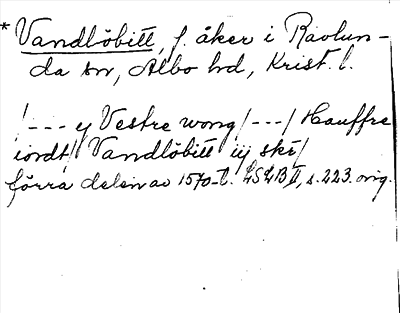 * Vandlöbitt, f. åker i Ravlun-
da sn, Albo hd, Krist. l.
/--- y Vestre wong/---/ Hauffre
iordt/ Vandlöbitt iij skr/
förra delen av 1570-t. LSLB II, s. 223. orig.